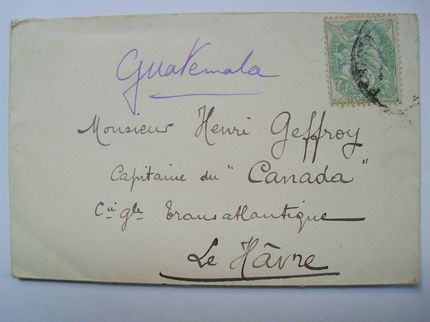 Guatemala
Monsieur Henri Geffroy
Capitaine du "Canada"
Cie gle Transatlantique
Le Hâvre